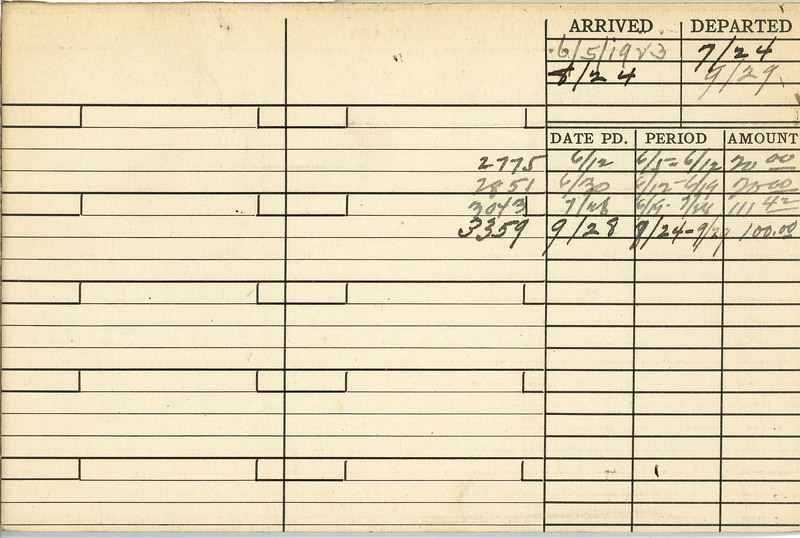 ARRIVED DEPARTED
6/5/1923 7/24
8/24 9/29
DATE PD. PERIOD AMOUNT
2775 6/12 6/5-6/12 20 00
2851 6/30 6/12-6/19 20 00
3043 7/28 6/19-7/24 111 42
3359 9/28 8/24-9/29 100.00